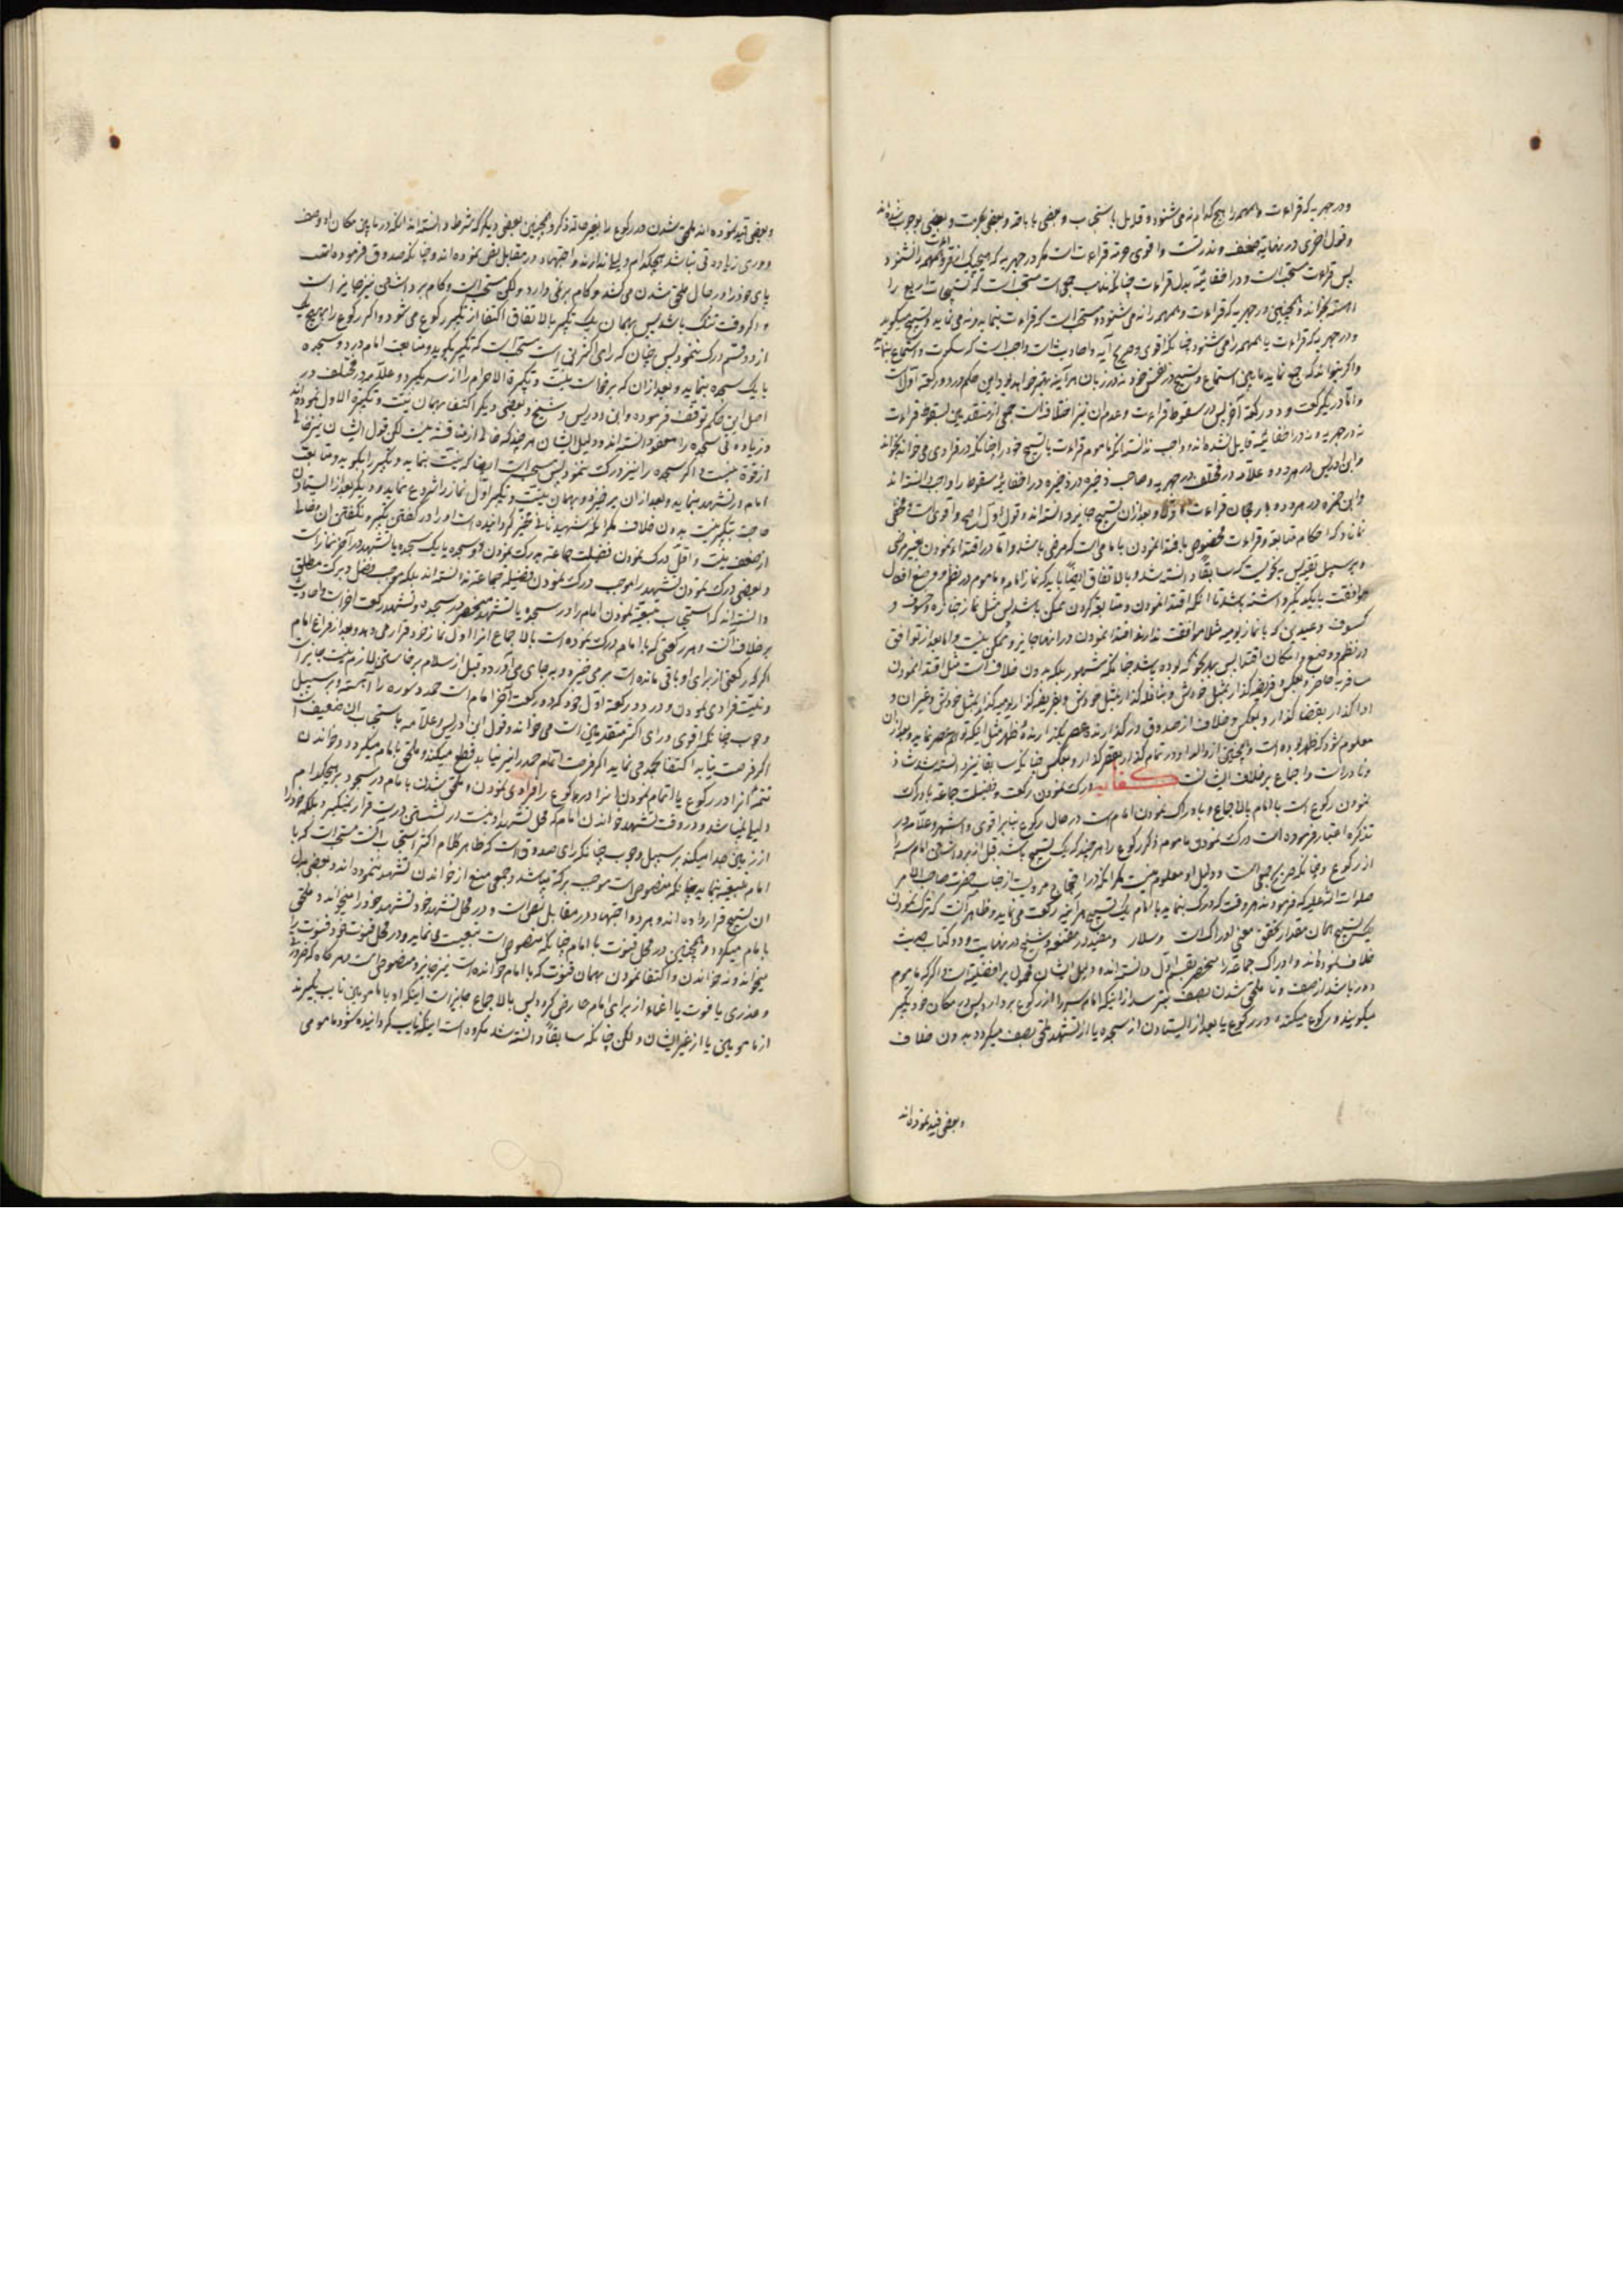 ودر جهریه که قراءت و همهمه را هیچ کدام نمی شنود و قد یل باستحباب و بعضی باباحه و بعضی بحرمت و بعضی بوجوب شده اند
و قول اخری در نهایة ضعف و ندرتست و اقوی حرمة قراءت است مکر در جهریه که هیچ یک از قراءت همهمه را نشنود
پس قراءت مستحبّ است و در اخفائیّه بدل قراءت چنانکه مذهب جمعی است مستحبّ است که تسبیحات اربع را
اهسته بخواند و همچنین در جهریه که قراءت و همهمه را نمی شنود و مستحبّ است که قراءت ننماید و نمی نماید و تسبیح میکوید
و در جهریه که قراءت یا همهمه را می شنود چنانکه اقوی و صریح آیه و احادیث است واجب است که سکوت و استماع نماید
و اکر بتواند که جمع نماید مابین استماع و تسبیح در نفس خود نه در زبان هر آینه بهتر خواهد بود این حکم در دو رکعة اوّل است
و امّا در یک رکعت و دو رکعة آخر پس در سقوط قراءت و عدم ان نیز اختلاف است جمعی از متقدمین بسقوط قراءت
نه در جهریه و نه در اخفائیّه قایل نشده اند و واجب ندانسته اند که ماموم قراءت یا تسبیح خود را چنانکه در فرادی می خواند بخواند
و ابن ادریس در هر دو و علاّمه در مختلف در جهریه و صاحب ذخیره در ذخیره در اخفائیّه سقوط را واجب دانسته اند
و ابن حمزه در هر دو برجحان قراءت اوّلا و بعد از ان تسبیح جایز دانسته اند و قول اوّل اصح و اقوی است و مخفی
نماناد که احکام متابعة و قراءت مخصوص باقتدا نمودن بامامی است که مرضی باشد و امّا در اقتداء نمودن بغیر مرضی
و بر سبیل تقیّه پس به نحویست که سابقاً دانسته شد و بالاتفاق ایضاً باید که نماز امام و ماموم در نظم و وضع افعال
موافقت با یکدیکر داشته باشد تا انکه اقتدا نمودن و متابعة کردن ممکن باشد پس مثل نماز جنازه و خسوف و
کسوف و عیدین که با نماز یومیه مثلا موافقت ندارند اقتدا نمودن در انها جایز و ممکن نیست و اما بعد از توافق
در نظم و وضع و امکان اقتدا پس بهر نحو که بوده باشد چنانکه مشهور بلکه بدون خلاف است مثل اقتدا نمودن
مسافر به حاضر و بعکس و فریضه کذار بمثل خودش و بنافله کذار و نافله کذار بمثل خودش و بفریضه کذار و یومیه کذار بمثل خودش و غیر ان و
ادا کذار بقضا کذار و بعکس و خلاف از صدوق در کذارندهٔ عصر بکذارندهٔ ظهر مثل اینکه توهّم عصر نماید و بعد از ان
معلوم شود که ظهر بوده است و همچنین از والد او در تمام کذار بقصر کذار و بعکس چنانکه سابقا نیز دانسته شد شاذ
و نادر است و اجماع بر خلاف ایشانست کفایه درک نمودن رکعت و فضیلت جماعة بادراک
نمودن رکوع است با امام بالاجماع و بادراک نمودن امام است در حال رکوع بنابر اقوی و اشهر و علاّمه در
تذکره اعتبار فرموده است درک نمودن ماموم ذکر رکوع را هر چند که یک تسبیح باشد قبل از برداشتن امام سر را
از رکوع و چنانکه صریح جمعی است و دلیل او معلوم نیست مکر انکه در احتجاج مرویست از جناب حضرت صاحب الامر
صلوات الله علیه که فرمودند هر وقت که درک بنماید با امام یک تسبیح هر آینه رکعت می نماید و ظاهر آنست که درک نمودن
یک تسبیح همان مقدار تحقق معنی ادراک است و سلار و مفید در مقنعه و شیخ در نهایت و دو کتاب حدیث
خلاف نموده اند و ادراک جماعة را منحصر بقسم اوّل دانسته اند و دلیل ایشان محمول بر افضلیّت است و اکر که ماموم
دور باشد از صف و تا ملحق شدن بصف بترسد از اینکه امام سر را از رکوع بردارد پس در مکان خود تکبیر
میکویند و رکوع میکنند و در رکوع یا بعد از ایستادن از سجده یا از تشهد ملحق بصف میکردد بدون خلاف
و بعضی قید نموده اند
و بعضی قید نموده اند ملحق شدن در رکوع را بغیر حالة ذکر و همچنین بعضی دیکر که شرط دانسته اند انکه در مابین مکان او و صف
دوری زیادتی نباشد هیچکدام دلیلی ندارند و اجتهاد در مقابل نص نموده اند و چنانکه صدوق فرموده است
پای خود را در حال ملحق شدن می کشد و کام بر نمی دارد ولکن مستحبّ است و کام برداشتن نیز جایز است
و اکر وقت تنک باشد پس بهمان یک تکبیر بالاتفاق اکتفا از تکبیر رکوع می شود و اکر رکوع را بهیچ یک
از دو قسم درک ننمود پس چنان که رای اکثر فی است مستحبّ است که تکبیر بکوید و متابعت امام در دو سجده
یا یک سجده بنماید و بعد از ان که برخاست نیّت و تکبیرة الاحرام را از سر بکیرد و علاّمه در مختلف در
اصل این حکم توقّف فرموده و ابن ادریس و شیخ و بعضی دیکر اکتفا بهمان نیّت و تکبیرة الاوّل نموده اند
و زیادتی سجده را معفو دانسته اند و دلیل ایشان هر چند که خالی از مناقشه نیست لکن قول ایشان نیز خالی
از قوّة نیست و اکر سجده را نیز درک ننمود پس مستحبّ است ایضاً که نیّت بنماید و تکبیر را بکوید و متابعت
امام در تشهد بنماید و بعد از ان برخیزد و بهمان نیّت و تکبیر اوّل نماز را شروع نماید و دیکر بعد از ایستادن
حاجت بتکبیر نیست بدون خلاف مکر انکه شهید ثانی مخیّر کردانیده است او را در کفتن تکبیر و نکفتن ان و خالی
از ضعف نیست و اقلّ درک نمودن فضیلت جماعة بدرک نمودن دو سجده یا یک سجده یا تشهد در آخر نماز است
و بعضی درک نمودن تشهد را موجب درک نمودن فضیلة جماعة ندانسته اند بلکه موجب فضل و برکت مطلق
دانسته اند که استحباب تبعیّة نمودن امام را در سجده یا تشهد منحصر در سجده و تشهد رکعت آخر است و احادیث
بر خلاف انست و هر رکعتی که با امام درک نموده است بالاجماع انرا اوّل نماز خود قرار می دهد و بعد از فراغ امام
اکر که رکعتی از برای او باقی مانده است بر می خیزد و بجای می آورد و قبل از سلام برخاستن لازم نیست جایز است
و نیّت فرادی نمودن و در دو رکعة اوّل خود که دو رکعت آخر امام است حمد و سوره را آهسته و بر سبیل
وجوب چنانکه اقوی و رای اکثر متقدمین است می خواند و قول ابن ادریس و علاّمه باستحباب ان ضعیف است
اکر فرصت نیابد اکتفا بحمد می نماید اکر فرصت اتمام حمد را نیز نیابد قطع میکند و ملحق بامام میکردد و خواندن
تتمّهٔ انرا در رکوع یا اتمام نمودن انرا و رکوع را فرادی نمودن و ملحق شدن بامام در سجود هیچکدام
دلیلی نمی باشد و در وقت تشهد خواندن امام که محل تشهد او نیست در نشستن درست قرار نمیکیرد بلکه خود را
از زمین جدا میکند بر سبیل وجوب چنانکه رای صدوق است که ظاهر کلام اکثر استحباب آنست مستحبّ است که با
امام تبعیّة بنماید چنانکه منصوص است موجب برکة میباشد و جمعی منع از خواندن تشهد ننموده اند و بعضی بدل
ان تسبیح قرار داده اند و هر دو اجتهاد در مقابل نص است و در محل تشهد خود تشهد خود را میخواند و ملحق
بامام میکردد و همچنین در محل قنوت با امام چنانکه منصوص است تبعیت می نماید و در محل قنوت خود قنوت را
میخواند و نخواندن و اکتفا نمودن بهمان قنوت که با امام خوانده است نیز جایز و منصوص است هر کاه که ضرورة
و عذری یا فوت یا اغماء از برای امام عارض کردد پس بالاجماع جایز است اینکه او یا مامومین نایب بکیرند
از مامومین یا از غیر ایشان ولکن چنانکه سابقاً دانسته شد مکروه است اینکه نایب کردانیده شود مامومی